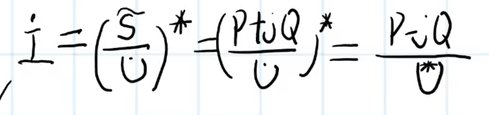 İ = (S̃/U̇)* = (P+jQ/U̇)* = P-jQ/U*